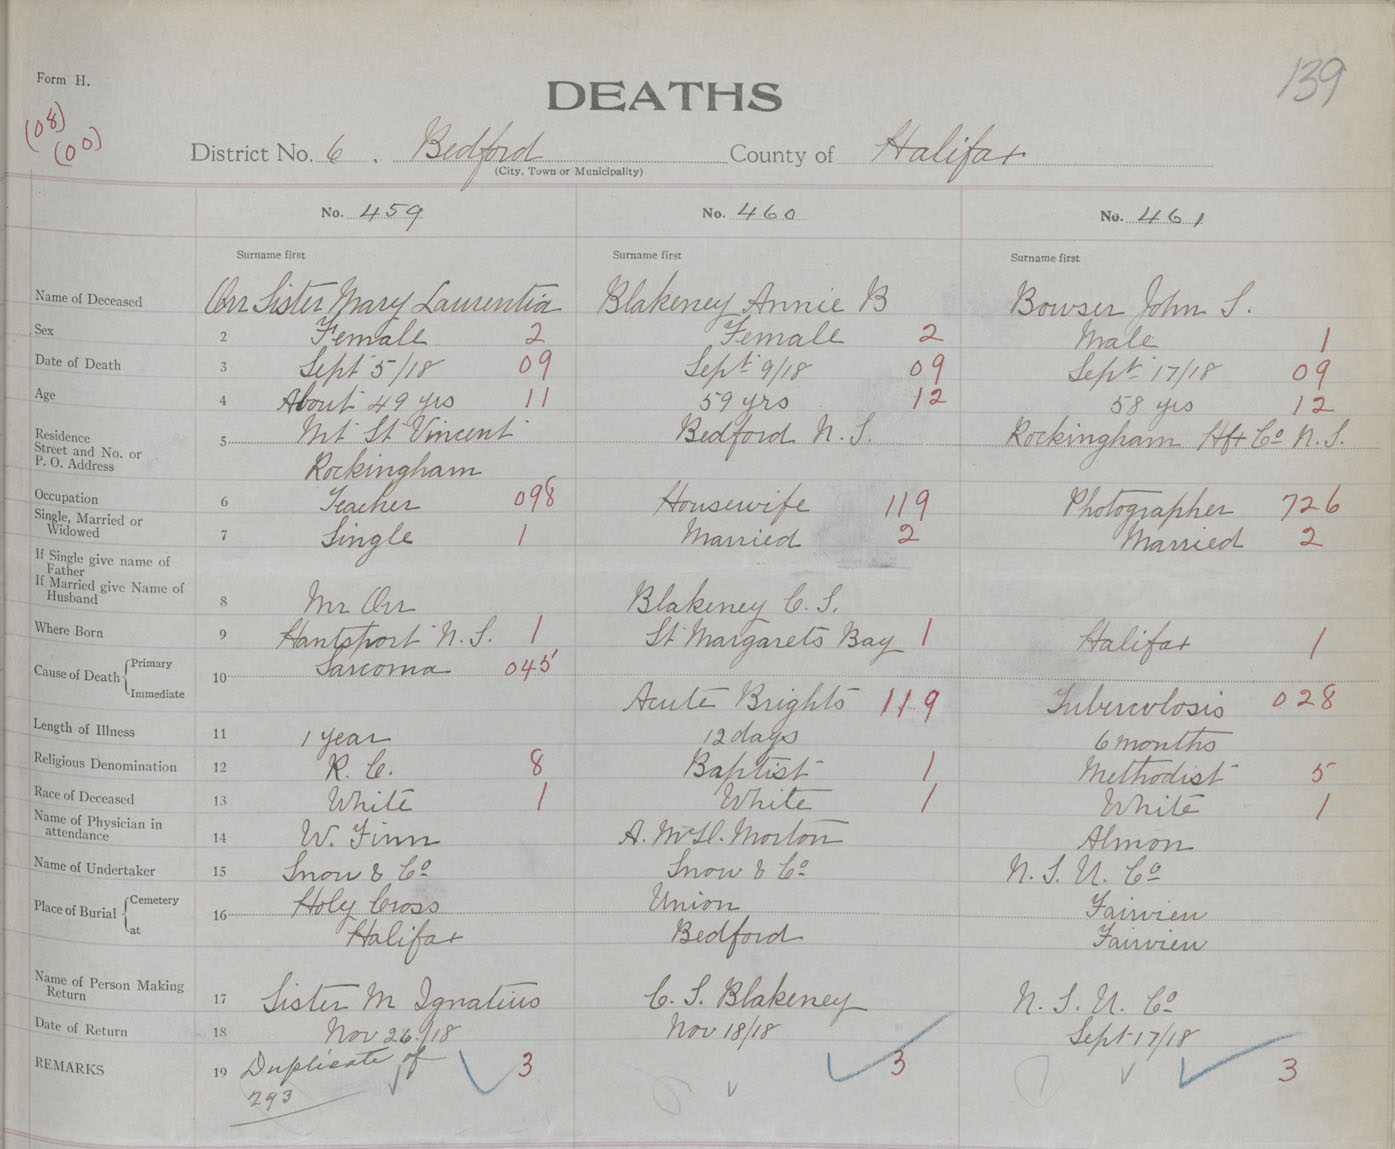 Form H.
139
DEATHS
(08)
(00)
District No. 6. Bedford County of Halifax
(City, Town or Municipality)
No. 459 No. 460 No. 461
Surname first Surname first Surname first
Name of Deceased Orr Sister Mary Laurentia Blakeney Annie B Bowser John S.
Sex 2 Female 2 Female 2 Male 1
Date of Death 3 Sept 5/18 09 Sept 9/18 09 Sept 17/18 09
Age 4 About 49 yrs 11 59 yrs 12 58 yrs 12
Residence Street and No. or P. O. Address 5 Mt St Vincent Bedford N. S. Rockingham Hfx Co N. S.
Rockingham
Occupation 6 Teacher 098 Housewife 119 Photographer 726
Single, Married or Widowed 7 Single 1 Married 2 Married 2
If Single give name of Father
If Married give Name of Husband 8 Mr Orr Blakeney C. S.
Where Born 9 Hantsport N. S. 1 St Margarets Bay 1 Halifax 1
Cause of Death Primary 10 Sarcoma 045
Immediate Acute Brights 119 Tuberculosis 028
Length of Illness 11 1 year 12 days 6 months
Religious Denomination 12 R. C. 8 Baptist 1 Methodist 5
Race of Deceased 13 White 1 White 1 White 1
Name of Physician in attendance 14 W. Finn A. McD. Morton Almon
Name of Undertaker 15 Snow & Co Snow & Co N. S. U. Co
Place of Burial Cemetery 16 Holy Cross Union Fairview
at Halifax Bedford Fairview
Name of Person Making Return 17 Sister M Ignatius C. S. Blakeney N. S. U. Co
Date of Return 18 Nov 26/18 Nov 18/18 Sept 17/18
REMARKS 19 Duplicate of 3 3 3
293